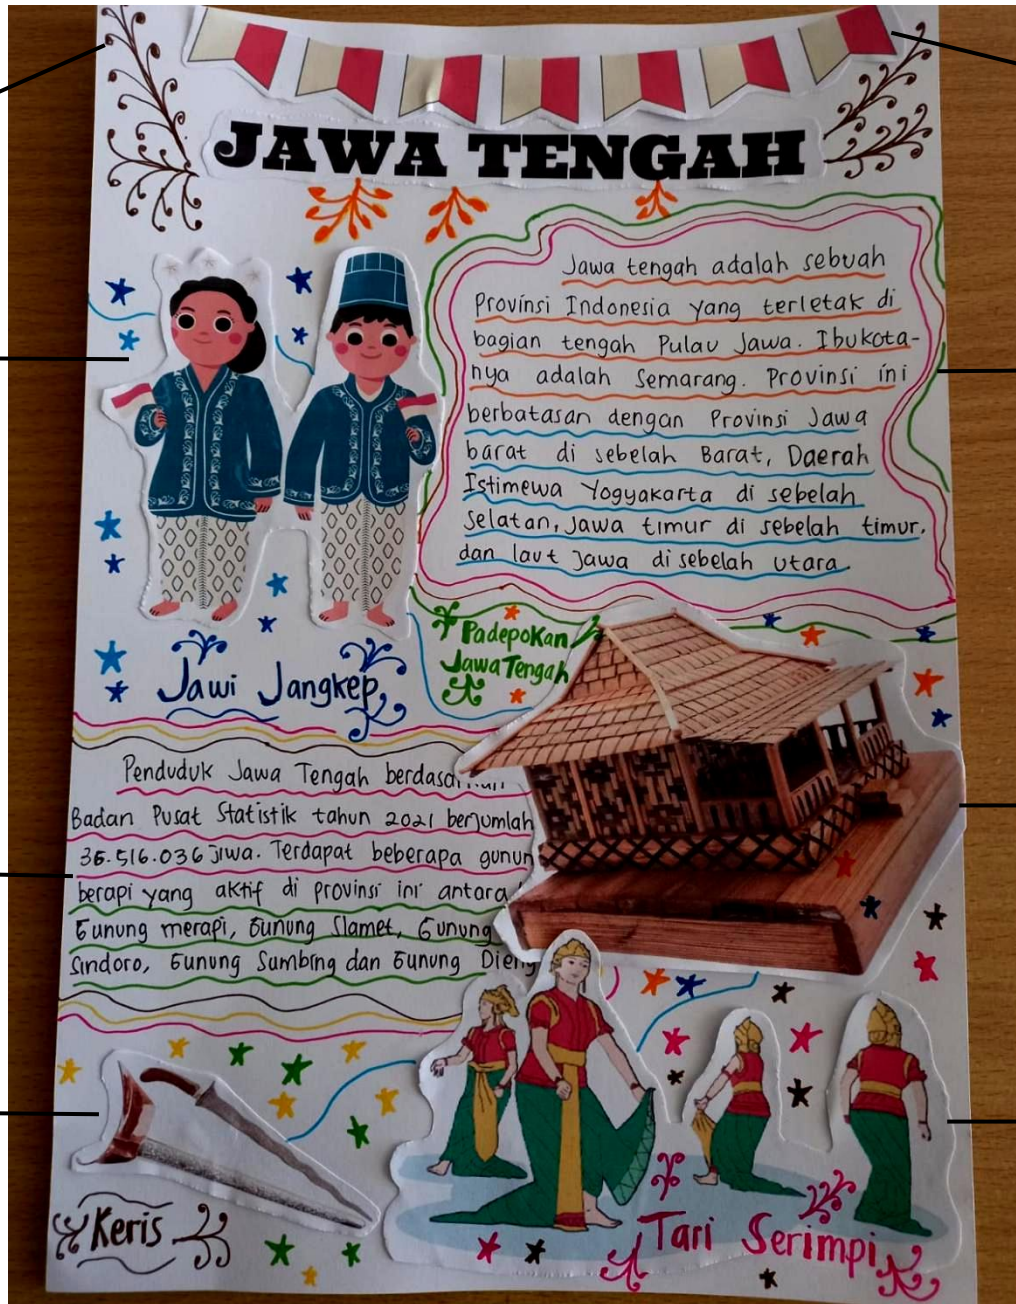 JAWA TENGAH
Jawa tengah adalah sebuah
Provinsi Indonesia yang terletak di
bagian tengah Pulau Jawa. Ibukota-
nya adalah Semarang. Provinsi ini
berbatasan dengan Provinsi Jawa
barat di sebelah Barat, Daerah
Istimewa Yogyakarta di sebelah
Selatan, Jawa timur di sebelah timur.
dan laut Jawa di sebelah utara.
Jawi Jangkep
Padepokan
Jawa Tengah
Penduduk Jawa Tengah
Badan Pusat Statistik tahun 2021 berjumlah
36.516.036 jiwa. Terdapat beberapa gunun
berapi yang aktif di provinsi ini antara
Gunung merapi, Gunung Slamet, Gunung
Sindoro, Gunung Sumbing dan Gunung Dieng
Keris
Tari Serimpi